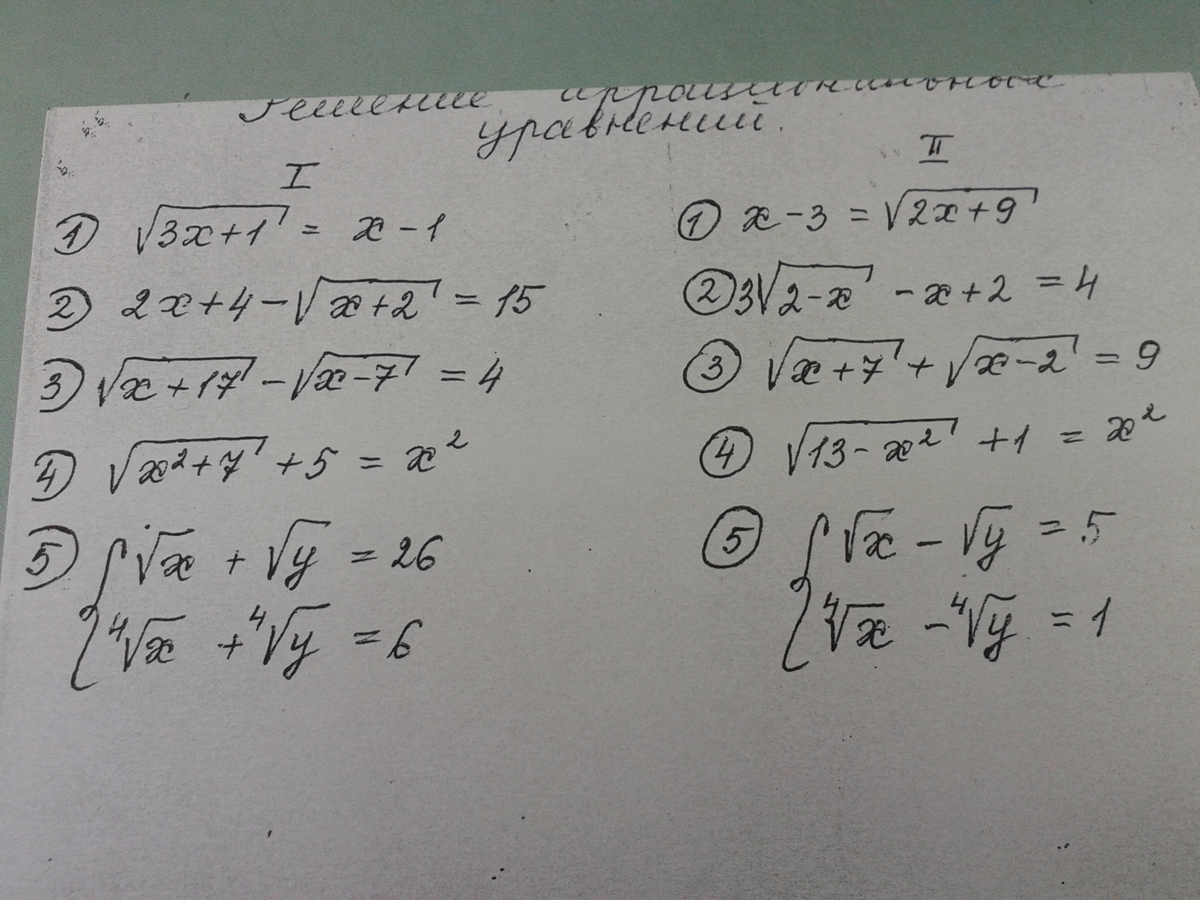 Решение иррациональных
уравнений.
I
① √(3x+1) = x - 1
② 2x + 4 - √(x+2) = 15
③ √(x+17) - √(x-7) = 4
④ √(x²+7) + 5 = x²
⑤ { √x + √y = 26
⁴√x + ⁴√y = 6
II
① x - 3 = √(2x+9)
② 3√(2-x) - x + 2 = 4
③ √(x+7) + √(x-2) = 9
④ √(13-x²) + 1 = x²
⑤ { √x - √y = 5
⁴√x - ⁴√y = 1